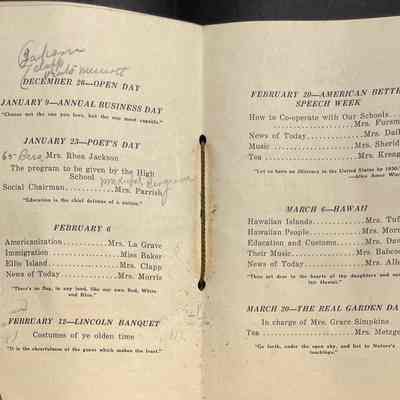 DECEMBER 26—OPEN DAY
JANUARY 9—ANNUAL BUSINESS DAY
"Choose not the one you love, but the one most capable."
JANUARY 23—POET'S DAY
Mrs. Rhea Jackson
The program to be given by the High
School
Social Chairman Mrs. Parrish
"Education is the chief defense of a nation."
FEBRUARY 6
Americanization Mrs. La Grave
Immigration Miss Baker
Ellis Island Mrs. Clapp
News of Today Mrs. Morris
"There's no flag, in any land, like our own Red, White
and Blue."
FEBRUARY 12—LINCOLN BANQUET
Costumes of ye olden time
"It is the cheerfulness of the guest which makes the feast."
FEBRUARY 20—AMERICAN BETTE
SPEECH WEEK
How to Co-operate with Our Schools
Mrs. Forsm
News of Today Mrs. Dail
Music Mrs. Sherid
Tea Mrs. Kreng
"Let us have no illiteracy in the United States by 1930."
—Alice Ames Win
MARCH 6—HAWAII
Hawaiian Islands Mrs. Tuf
Hawaiian People Mrs. Mor
Education and Customs Mrs. Da
Their Music Mrs. Babco
News of Today Mrs. Alle
"Thou art dear to the hearts of thy daughters and son
fair Hawaii."
MARCH 20—THE REAL GARDEN DA
In charge of Mrs. Grace Simpkins
Tea Mrs. Metzge
"Go forth, under the open sky, and list to Nature's
teachings."